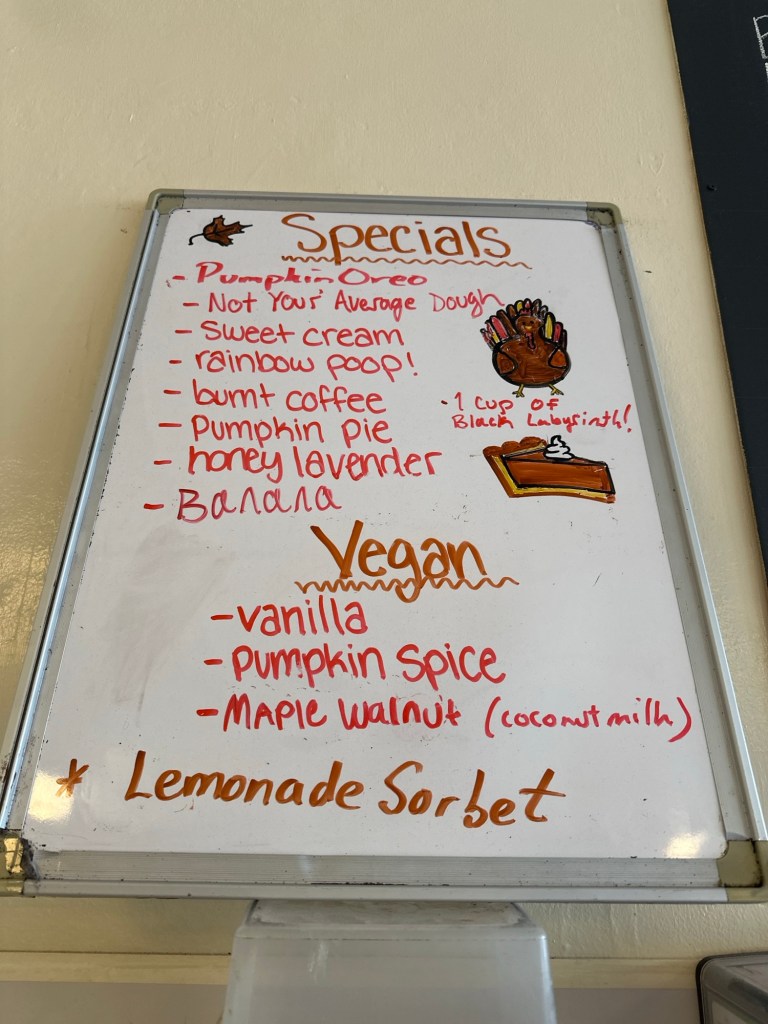 Specials
- Pumpkin Oreo
- Not Your Average Dough
- sweet cream
- rainbow poop!
- burnt coffee
- Pumpkin pie
- honey lavender
- Banana
· 1 cup of
Black Labyrinth!
Vegan
- vanilla
- pumpkin spice
- MAPLE walnut (coconut milk)
* Lemonade Sorbet